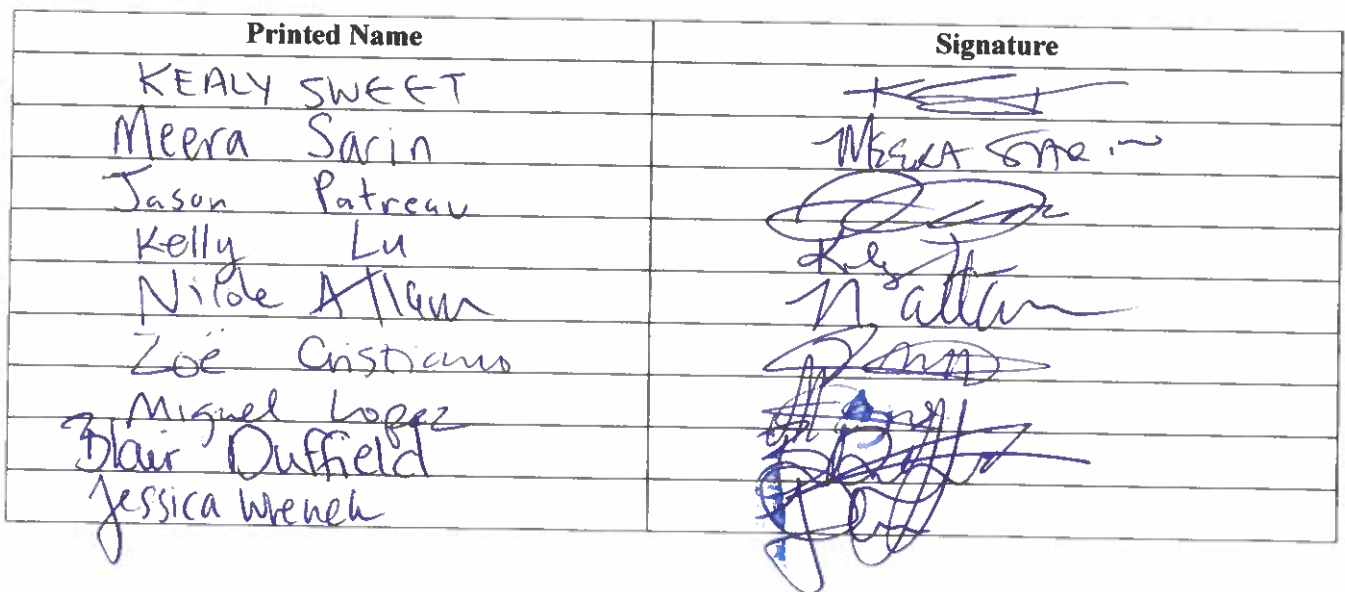 Printed Name Signature
KEALY SWEET
Meera Sarin MEERA SARIN
Jason Patreau
Kelly Lu
Nicole Attam N attam
Zoë Cristiano
Miguel Lopez
Blair Duffield
Jessica Wrench